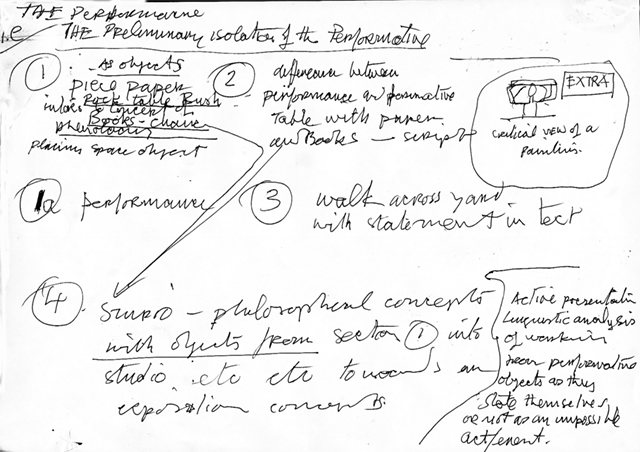 THE Performance
i.e THE Preliminary isolation of the Performative
1
As objects
piece paper
Rock table Bush
into concept of
Books - chair
placing space object
2
difference between
performance and performative
table with paper
and Books - script
EXTRA
critical view of a
painting.
1a performance
3 walk across yard
with statement in text
4. studio - philosophical concepts
with objects from section 1 into
studio etc etc towards an
concepts
Active presentation
Linguistic analysis
of
performative
objects as they
state themselves
or not as an impossible